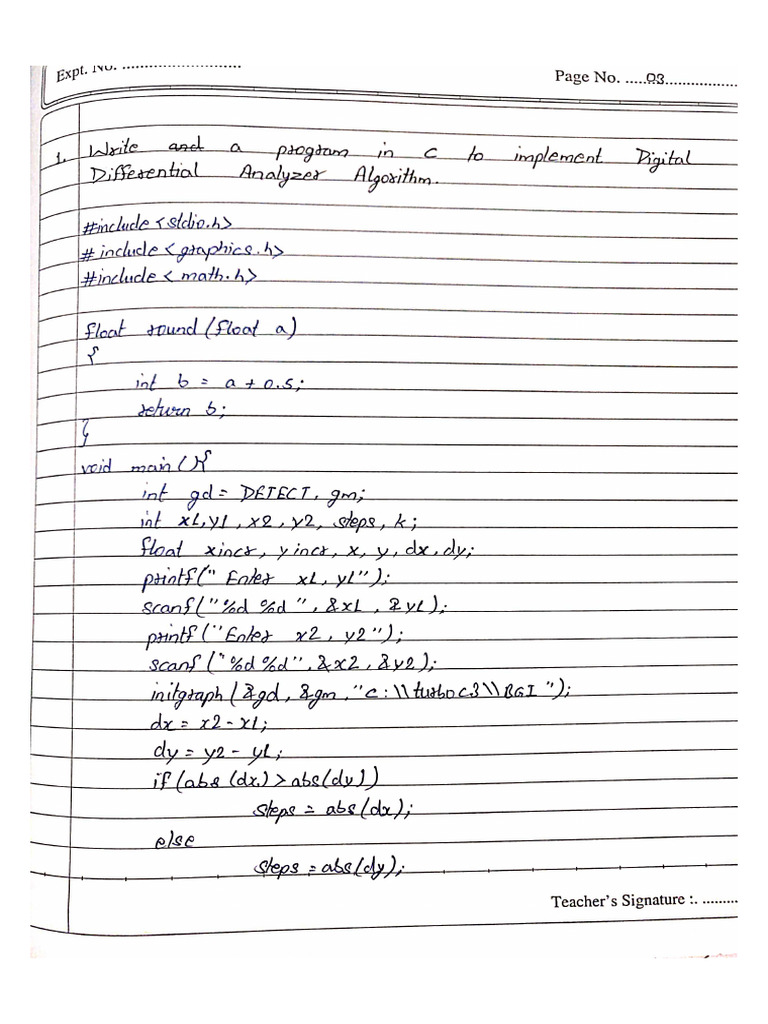 Expt. No. ............................
Page No. .....03.................
1. Write and a program in c to implement Digital
Differential Analyzer Algorithm.
#include <stdio.h>
# include <graphics.h>
#include < math.h>
float round (float a)
{
int b = a + 0.5;
return b;
}
void main () {
int gd = DETECT, gm;
int x1, y1, x2, y2, steps, k;
float xincr, yincr, x, y, dx, dy;
printf (" Enter x1, y1");
scanf ("%d %d", &x1, &y1);
printf ("Enter x2, y2");
scanf ("%d %d", &x2, &y2);
initgraph (&gd, &gm, "c:\\turboc3\\BGI");
dx = x2 - x1;
dy = y2 - y1;
if (abs (dx) > abs(dy))
steps = abs(dx);
else
steps = abs(dy);
Teacher's Signature :. .........